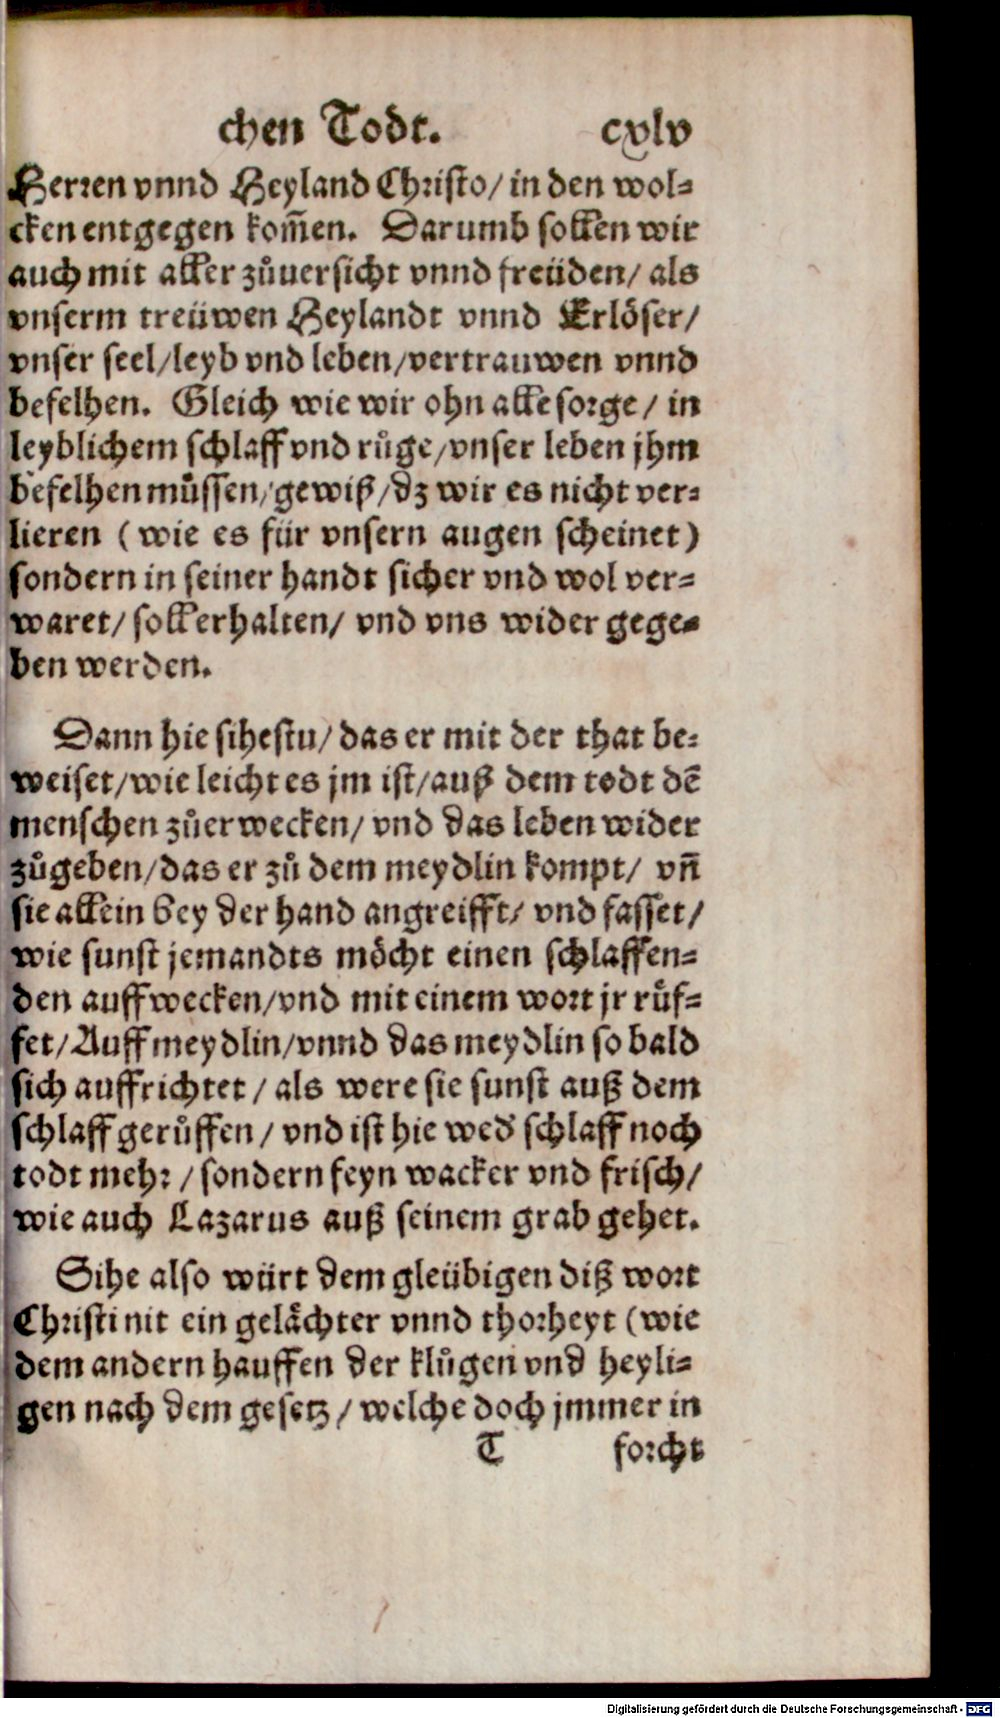 chen Todt. cxlv
Herren vnnd Heyland Christo/ in den wol=
cken entgegen kom̃en. Darumb sollen wir
auch mit aller zůuersicht vnnd freüden/ als
vnserm treüwen Heylandt vnnd Erlöser/
vnser seel/leyb vnd leben/vertrauwen vnnd
befelhen. Gleich wie wir ohn alle sorge/ in
leyblichem schlaff vnd růge/vnser leben jhm
befelhen müssen/gewiß/dz wir es nicht ver=
lieren (wie es für vnsern augen scheinet)
sondern in seiner handt sicher vnd wol ver=
waret/ soll erhalten/ vnd vns wider gege=
ben werden.
Dann hie sihestu/ das er mit der that be=
weiset/wie leicht es jm ist/auß dem todt dē
menschen zůerwecken/ vnd das leben wider
zůgeben/das er zů dem meydlin kompt/ vñ
sie allein bey der hand angreifft/ vnd fasset/
wie sunst jemandts möcht einen schlaffen=
den auffwecken/vnd mit einem wort jr růf=
fet/Auff meydlin/vnnd das meydlin so bald
sich auffrichtet/ als were sie sunst auß dem
schlaff gerůffen/ vnd ist hie wed' schlaff noch
todt mehr/ sondern feyn wacker vnd frisch/
wie auch Lazarus auß seinem grab gehet.
Sihe also würt dem gleübigen diß wort
Christi nit ein gelächter vnnd thorheyt (wie
dem andern hauffen der klůgen vnd heyli=
gen nach dem gesetz/ welche doch jmmer in
T forcht
Digitalisierung gefördert durch die Deutsche Forschungsgemeinschaft - DFG